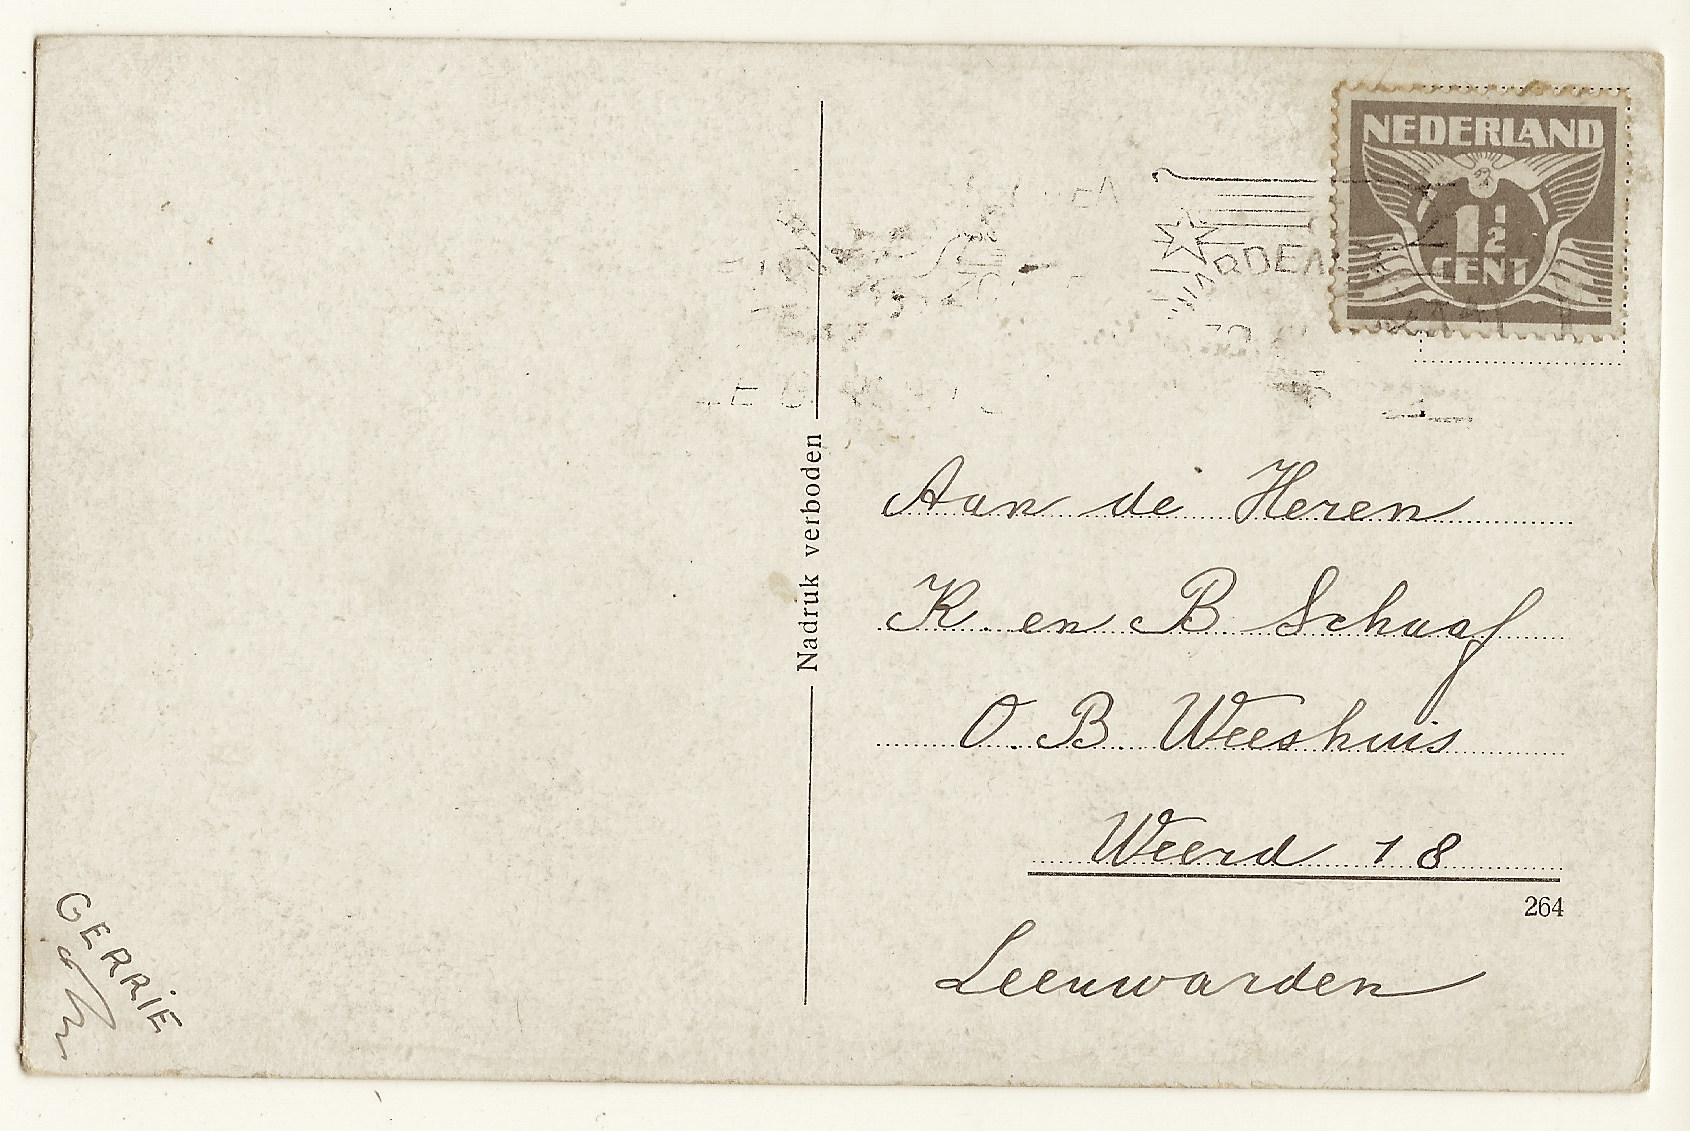 NEDERLAND
1½
CENT
Nadruk verboden
Aan de Heren
K. en B Schaaf
O. B. Weeshuis
Weerd 18
264
Leeuwarden
GERRIE